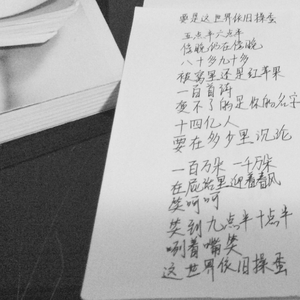 要是这世界依旧操蛋
五点半六点半
傍晚他在傍晚
八十多九十多
被窝里还是红苹果
一百首诗
变不了的是你的名字
十四亿人
要在多少里沉沦
一百万米 一千万米
在屁股里迎着春风
笑呵呵
笑到九点半十点半
咧着嘴笑
这世界依旧操蛋